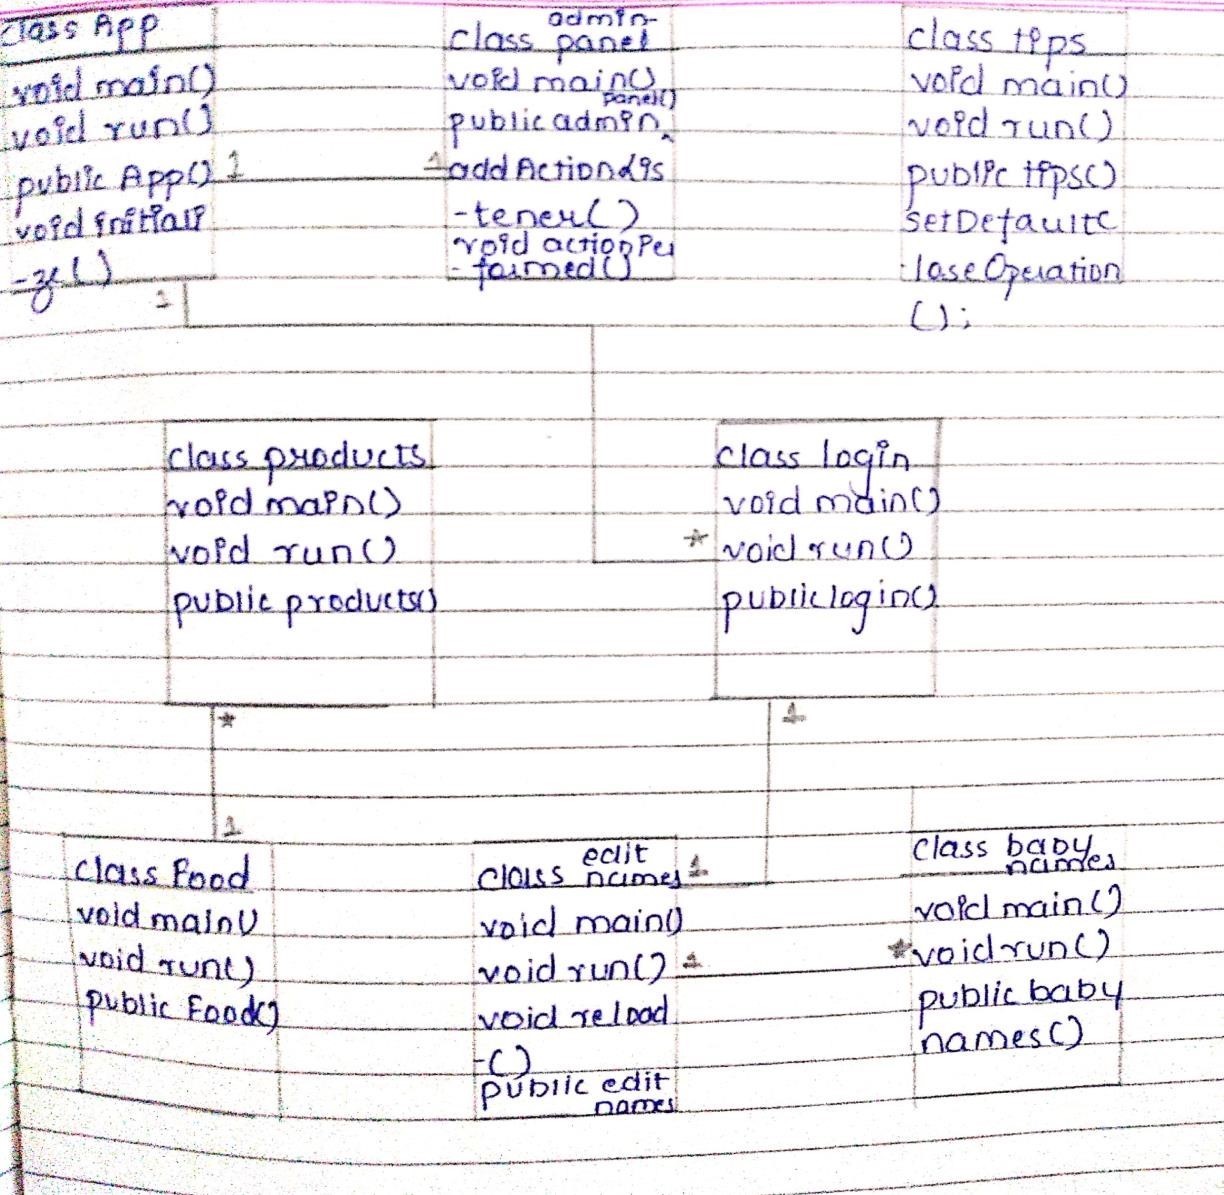 class App
void main()
void run()
public App() 1
void initiali
-ze()
1
admin-
class panel
void main()
panel()
public admin
1 addActionLis
-tener()
void actionPer
-formed()
class tips
void main()
void run()
public tips()
setDefaultC
-loseOperation
();
class products
void main()
void run()
public products()
*
class login
void main()
* void run()
public login()
1
1
class Food
void main()
void run()
public Food()
edit
class names 1
void main()
void run() 1
void reload
-()
public edit
names
class baby
names
void main()
* void run()
public baby
names()